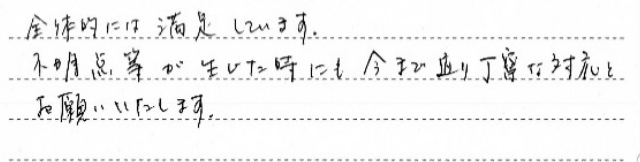 全体的には満足しています。
不明点等が生じた時にも今まで通り丁寧な対応を
お願いいたします。